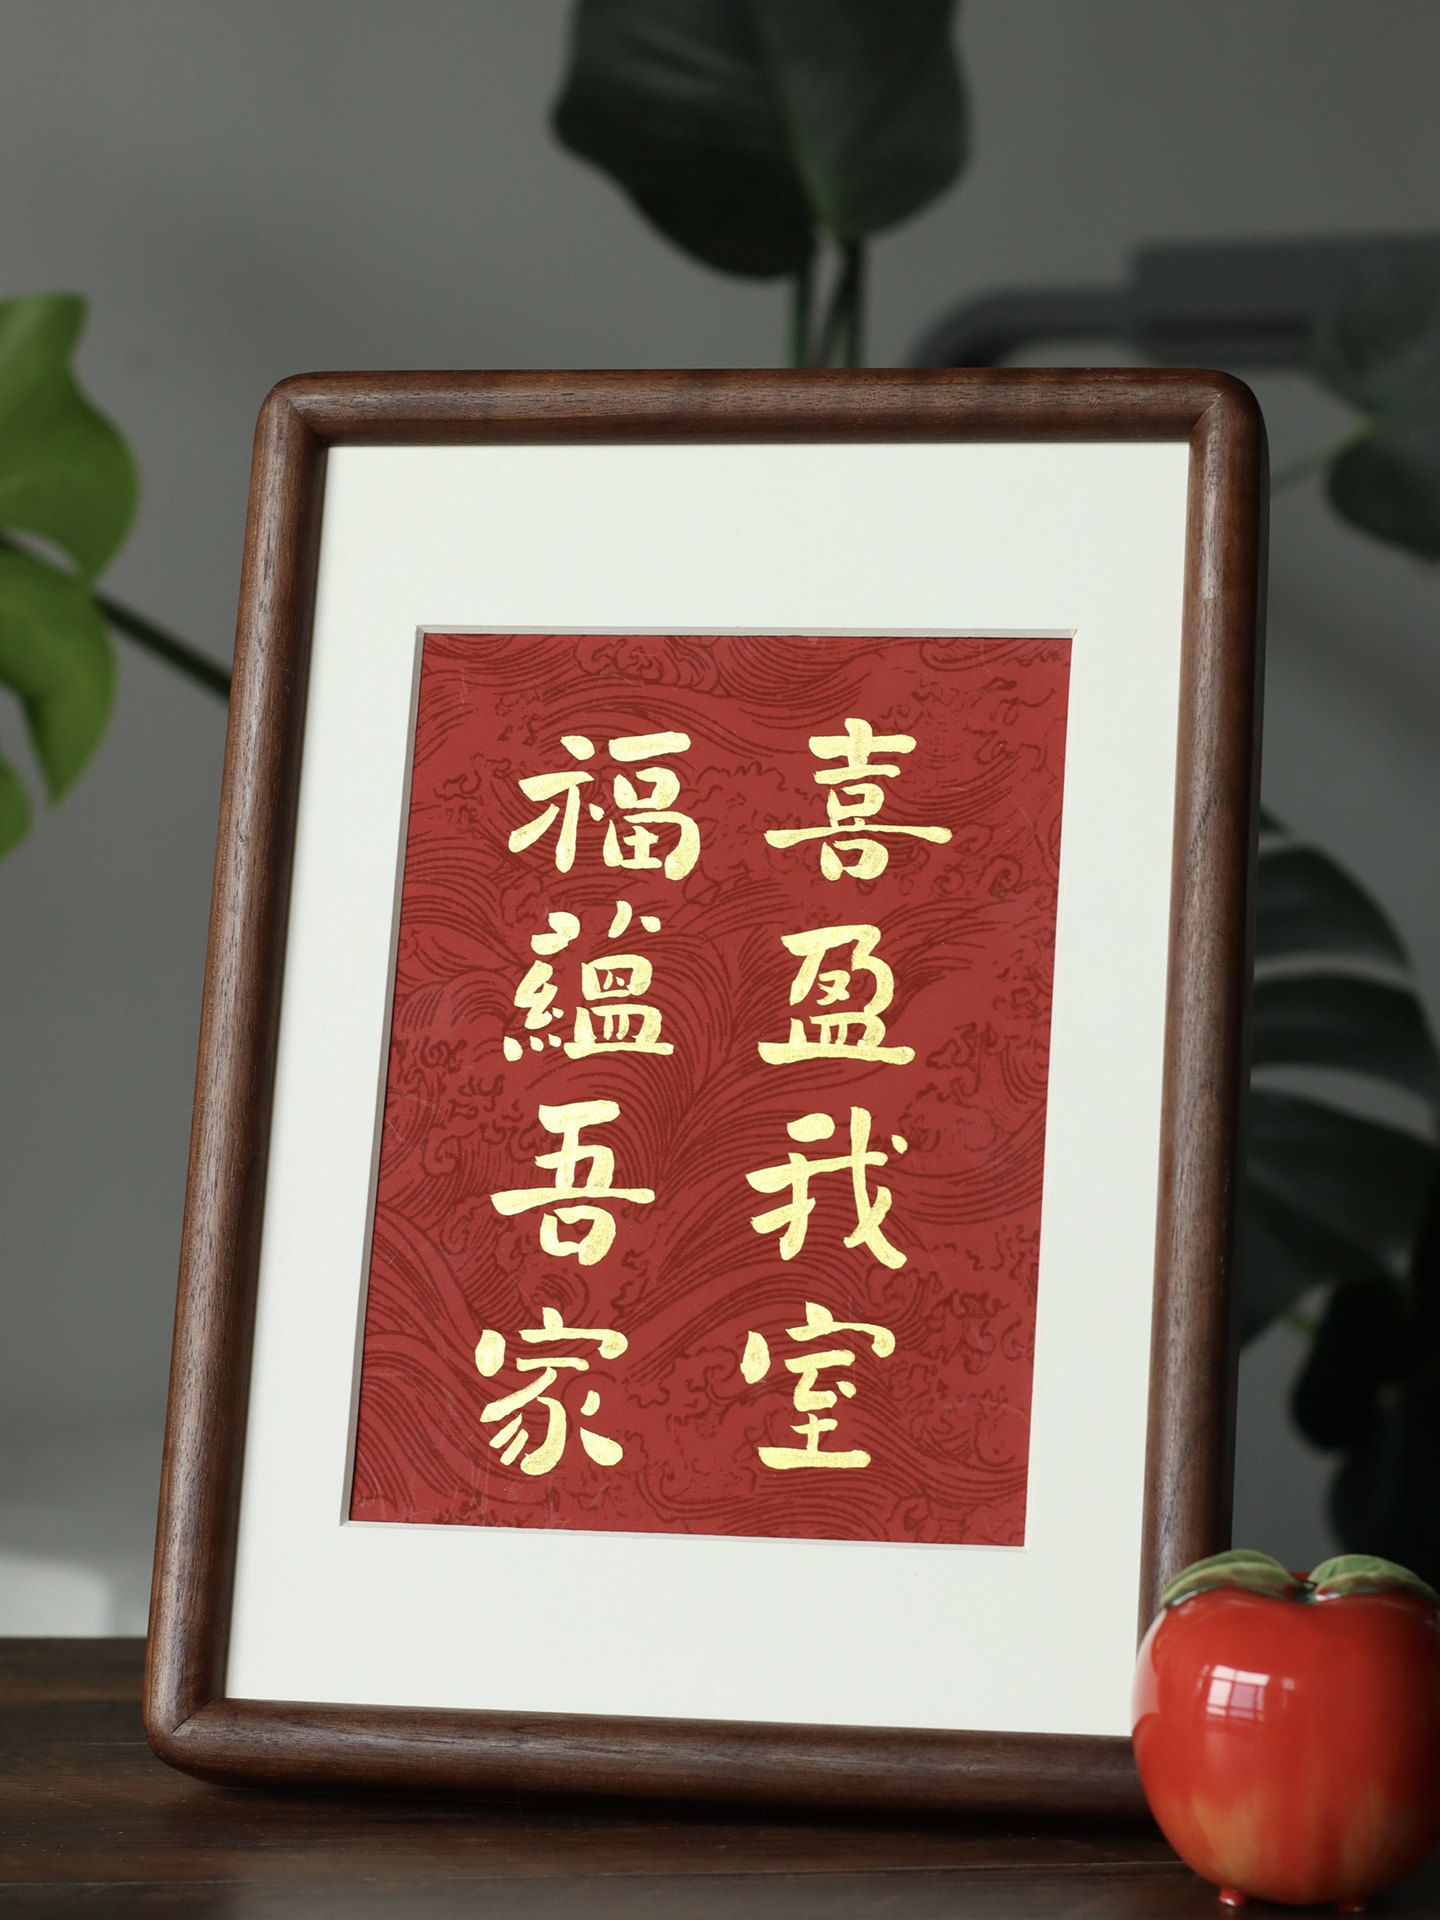 喜盈我室
福蘊吾家